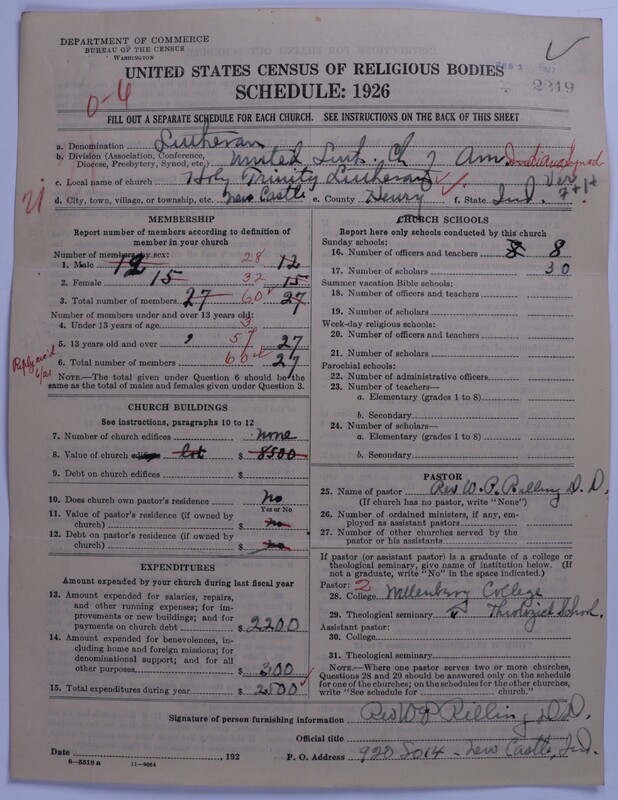 DEPARTMENT OF COMMERCE
BUREAU OF THE CENSUS
WASHINGTON
FEB 1
2219
UNITED STATES CENSUS OF RELIGIOUS BODIES
SCHEDULE: 1926
0-4
FILL OUT A SEPARATE SCHEDULE FOR EACH CHURCH. SEE INSTRUCTIONS ON THE BACK OF THIS SHEET
a. Denomination Lutheran
b. Division (Association, Conference, Diocese, Presbytery, Synod, etc.) United Luth. Ch of Am Indiana Synod
c. Local name of church Holy Trinity Lutheran Ver
d. City, town, village, or township, etc. New Castle e. County Henry f. State Ind.
21
MEMBERSHIP
Report number of members according to definition of
member in your church
Number of members by sex:
1. Male 12 28 12
2. Female 15 32 15
3. Total number of members 27 60 27
Number of members under and over 13 years old:
4. Under 13 years of age 3
5. 13 years old and over 57 27
6. Total number of members 60 27
Reply rec'd 6/21
NOTE.—The total given under Question 6 should be the
same as the total of males and females given under Question 3.
CHURCH BUILDINGS
See instructions, paragraphs 10 to 12
7. Number of church edifices none
8. Value of church lot $ 8500
9. Debt on church edifices $
10. Does church own pastor's residence No
Yes or No
11. Value of pastor's residence (if owned by
church) $ no
12. Debt on pastor's residence (if owned by
church) $ no
EXPENDITURES
Amount expended by your church during last fiscal year
13. Amount expended for salaries, repairs,
and other running expenses; for im-
provements on new buildings; and for
payments on church debt $ 2200
14. Amount expended for benevolences, in-
cluding home and foreign missions; for
denominational support; and for all
other purposes $ 300
15. Total expenditures during year $ 2500
CHURCH SCHOOLS
Report here only schools conducted by this church
Sunday schools:
16. Number of officers and teachers 8 8
17. Number of scholars 30
Summer vacation Bible schools:
18. Number of officers and teachers
19. Number of scholars
Week-day religious schools:
20. Number of officers and teachers
21. Number of scholars
Parochial schools:
22. Number of administrative officers
23. Number of teachers—
a. Elementary (grades 1 to 8)
b. Secondary
24. Number of scholars—
a. Elementary (grades 1 to 8)
b. Secondary
PASTOR
25. Name of pastor Rev W. P. Rilling D. D.
(If church has no pastor, write "None")
26. Number of ordained ministers, if any, em-
ployed as assistant pastors
27. Number of other churches served by the
pastor or his assistants
If pastor (or assistant pastor) is a graduate of a college or
theological seminary, give name of institution below. (If
not a graduate, write "No" in the space indicated.)
Pastor: 2
28. College College
29. Theological seminary School.
Assistant pastor:
30. College
31. Theological seminary
NOTE.—Where one pastor serves two or more churches,
Questions 28 and 29 should be answered only on the schedule
for one of the churches; on the schedules for the other churches,
write "See schedule for church."
Signature of person furnishing information Rev W P Rilling D.D.
Official title
Date , 192 P. O. Address 920 So 14 - New Castle, Ind.
8—5518a 11—9054